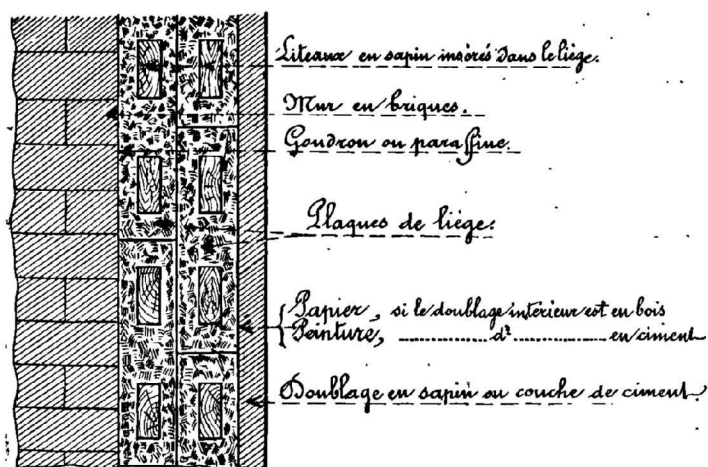 Liteaux en sapin insérés dans le liège.
Mur en briques.
Goudron ou paraffine.
Plaques de liège.
Papier, si le doublage intérieur est en bois
Peinture, ............ dº ............ en ciment
Doublage en sapin ou couche de ciment